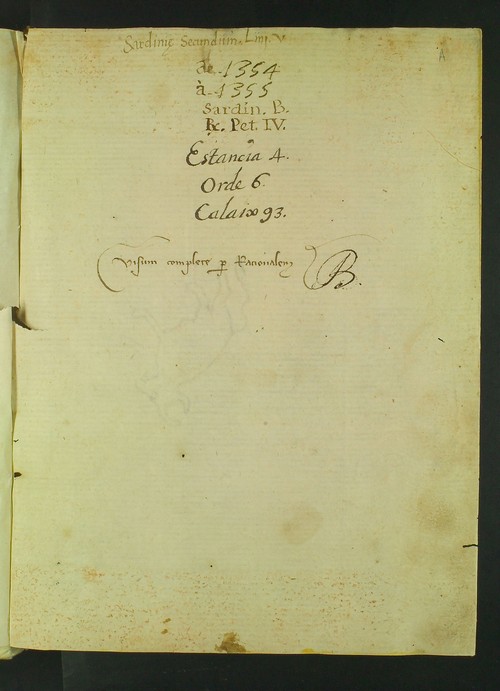 Sardinię Secundum. Liii. V.
A
de. 1354
à. 1355
Sardin. B.
Rc. Pet. IV.
Estancia 4.
Orde 6.
Calaix 93.
Visum complete p Rationalem B.